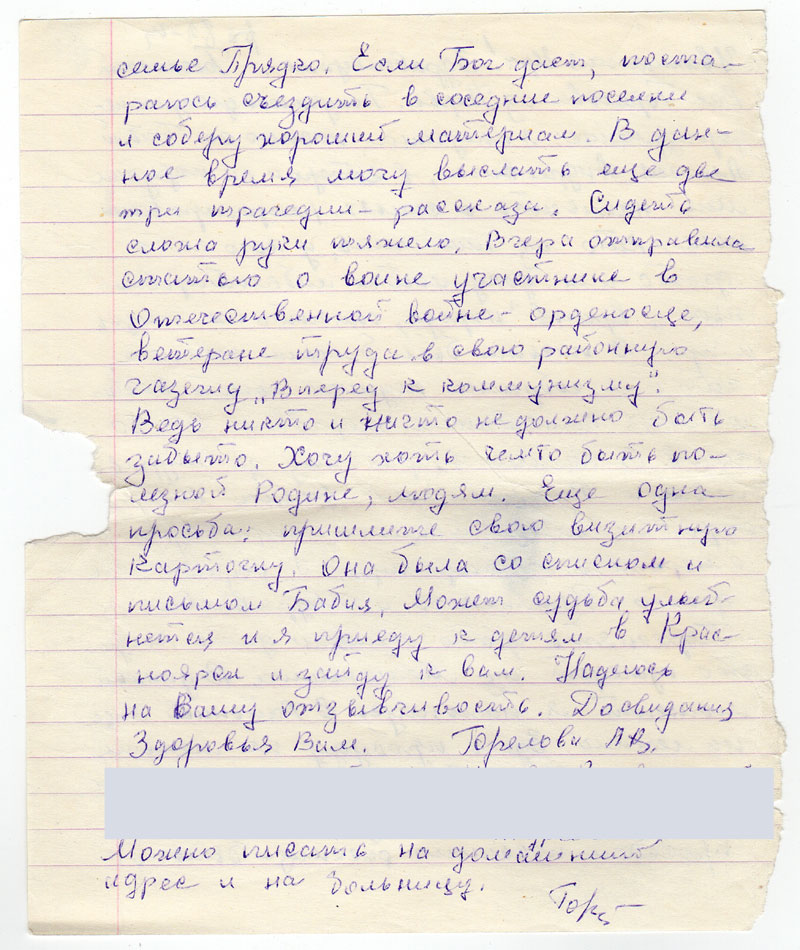 семье Прядко. Если Бог даст, поста-
раюсь съездить в соседние поселки
и соберу хороший материал. В дан-
ное время могу выслать еще две
три трагедии - рассказа. Сидеть
сложа руки тяжело. Вчера отправила
статью о воине участнике в
Отечественной войне - орденосце,
ветеране труда в свою районную
газету „Вперед к коммунизму".
Ведь никто и ничто не должно быть
забыто. Хочу хоть чемто быть по-
лезной Родине, людям. Еще одна
просьба: пришлите свою визитную
карточку. Она была со списком и
письмом Бабия. Может судьба улыб-
нется и я приеду к детям в Крас-
ноярск и зайду к вам. Надеюсь
на Вашу отзывчивость. Досвидания
Здоровья Вам. Горелова Л.В.
Можно писать на домашний
адрес и на больницу.